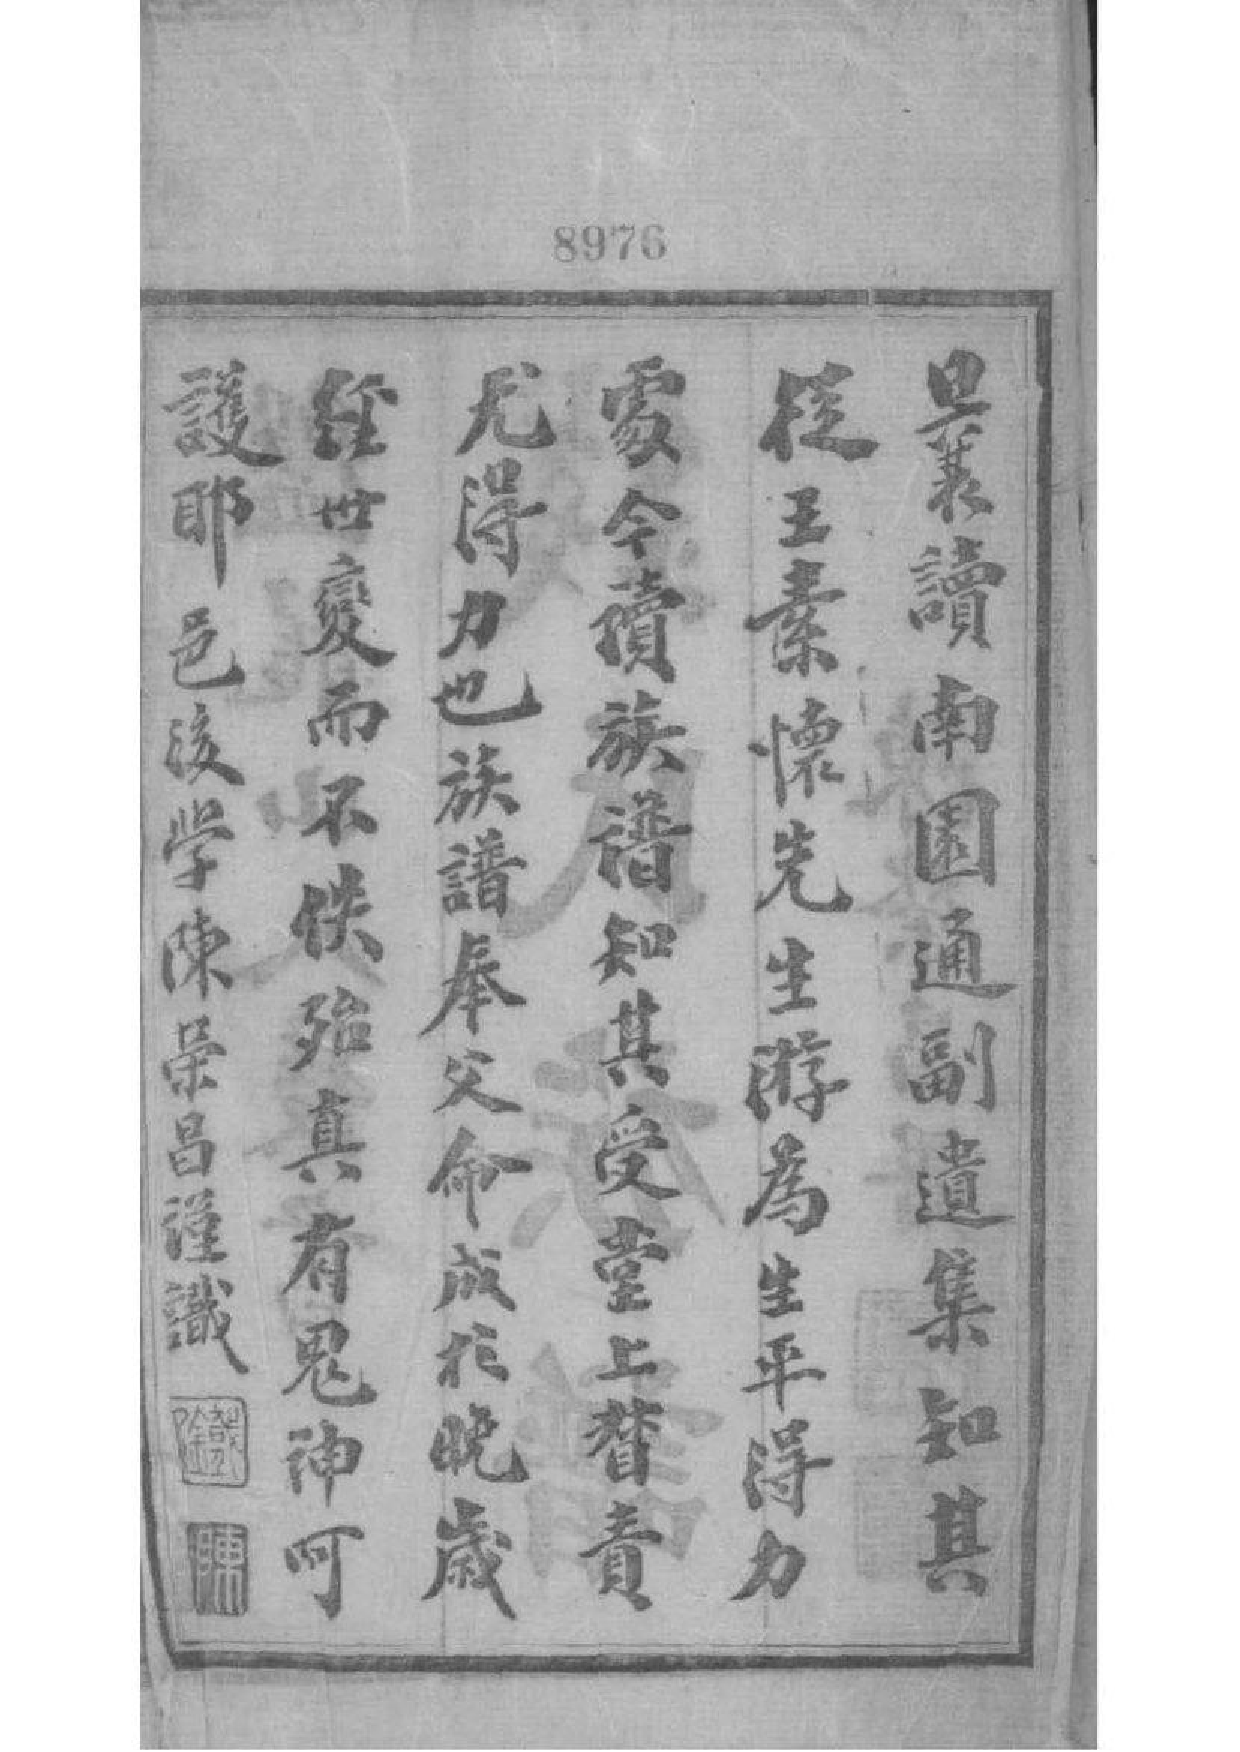 8976
曩讀南園通副遺集知其
從王素懷先生游為生平得力
處今讀族譜知其受堂上督責
尤得力也族譜奉父命成於晚歲
經世變而不佚殆真有鬼神呵
護耶 邑後學陳榮昌謹識
陳